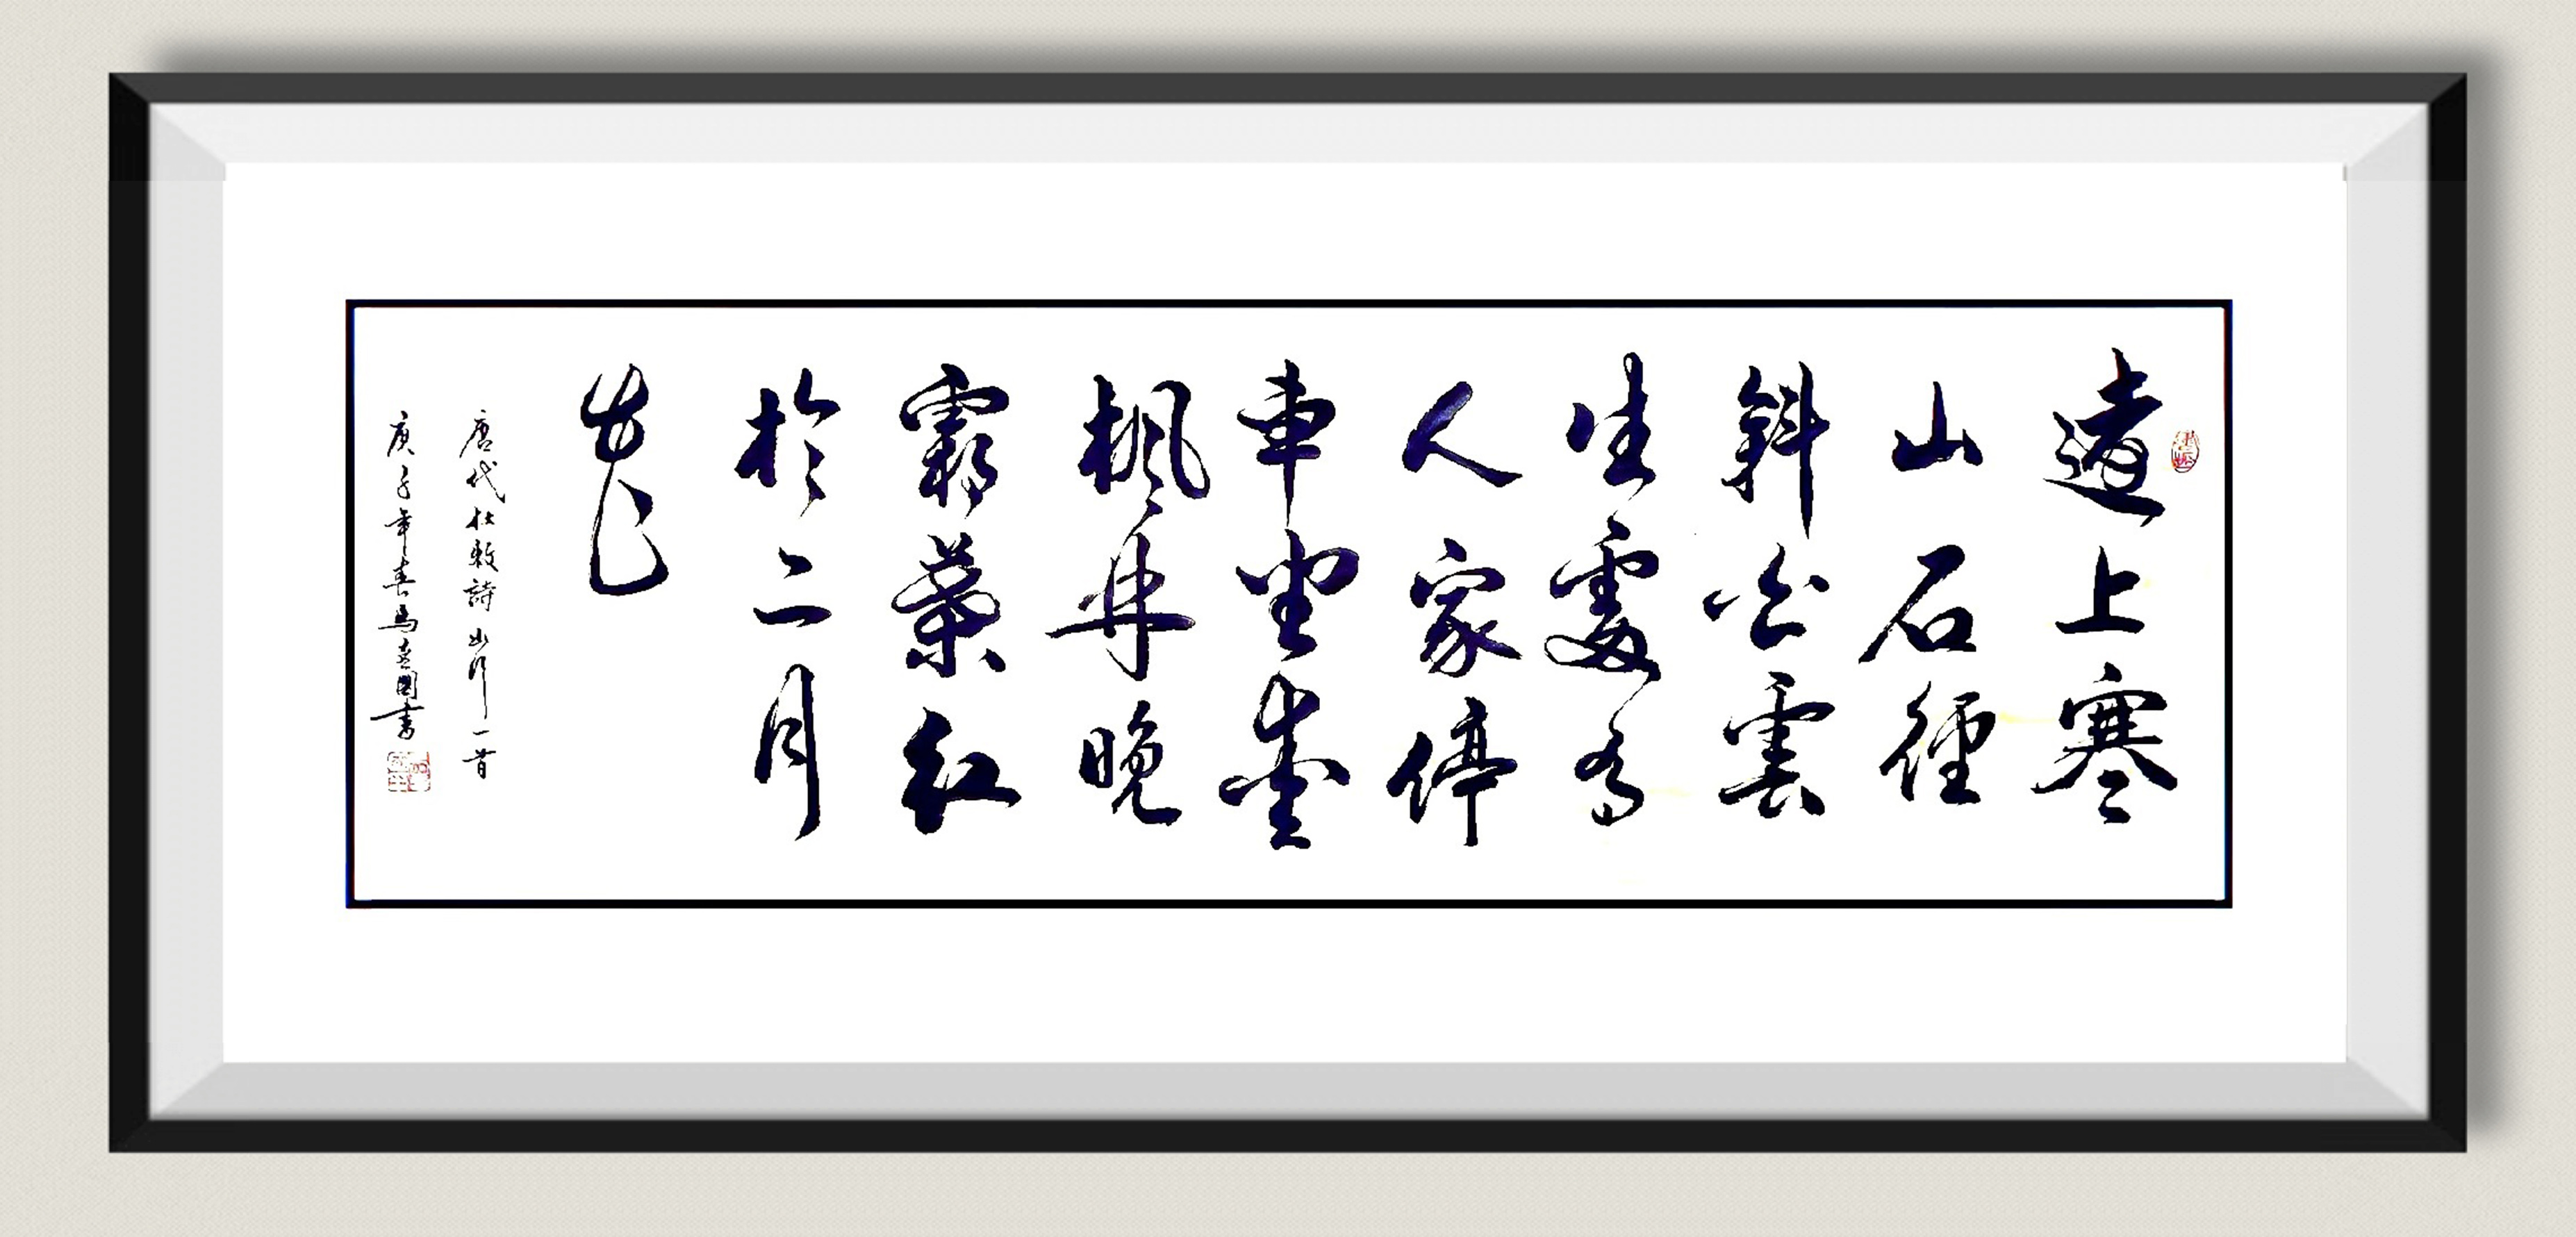 遠上寒
山石徑
斜白雲
生處有
人家停
車坐愛
楓林晚
霜葉紅
於二月
花
唐代杜牧詩山行一首
庚子年春馬喜國書